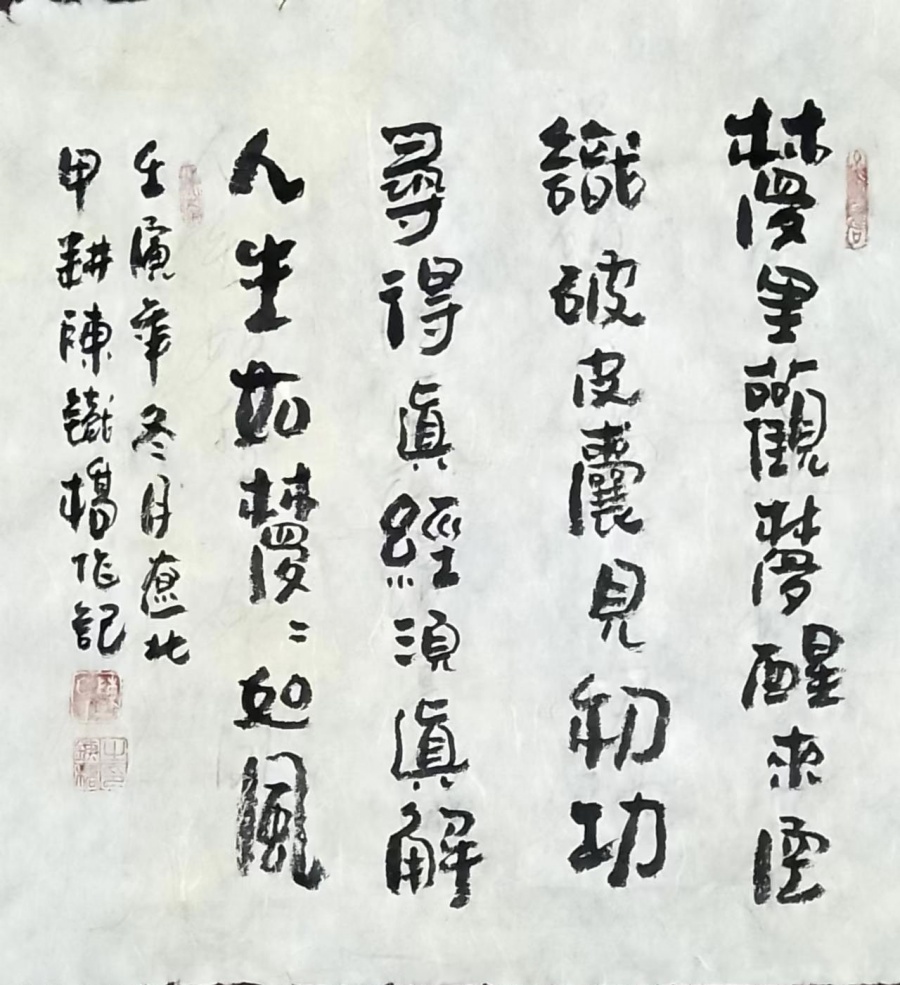 夢里觀夢醒來
識破皮囊見初功
尋得眞經須眞解
人生如夢〻如風
壬寅年冬月遼北
甲耕陳鐵楊作記